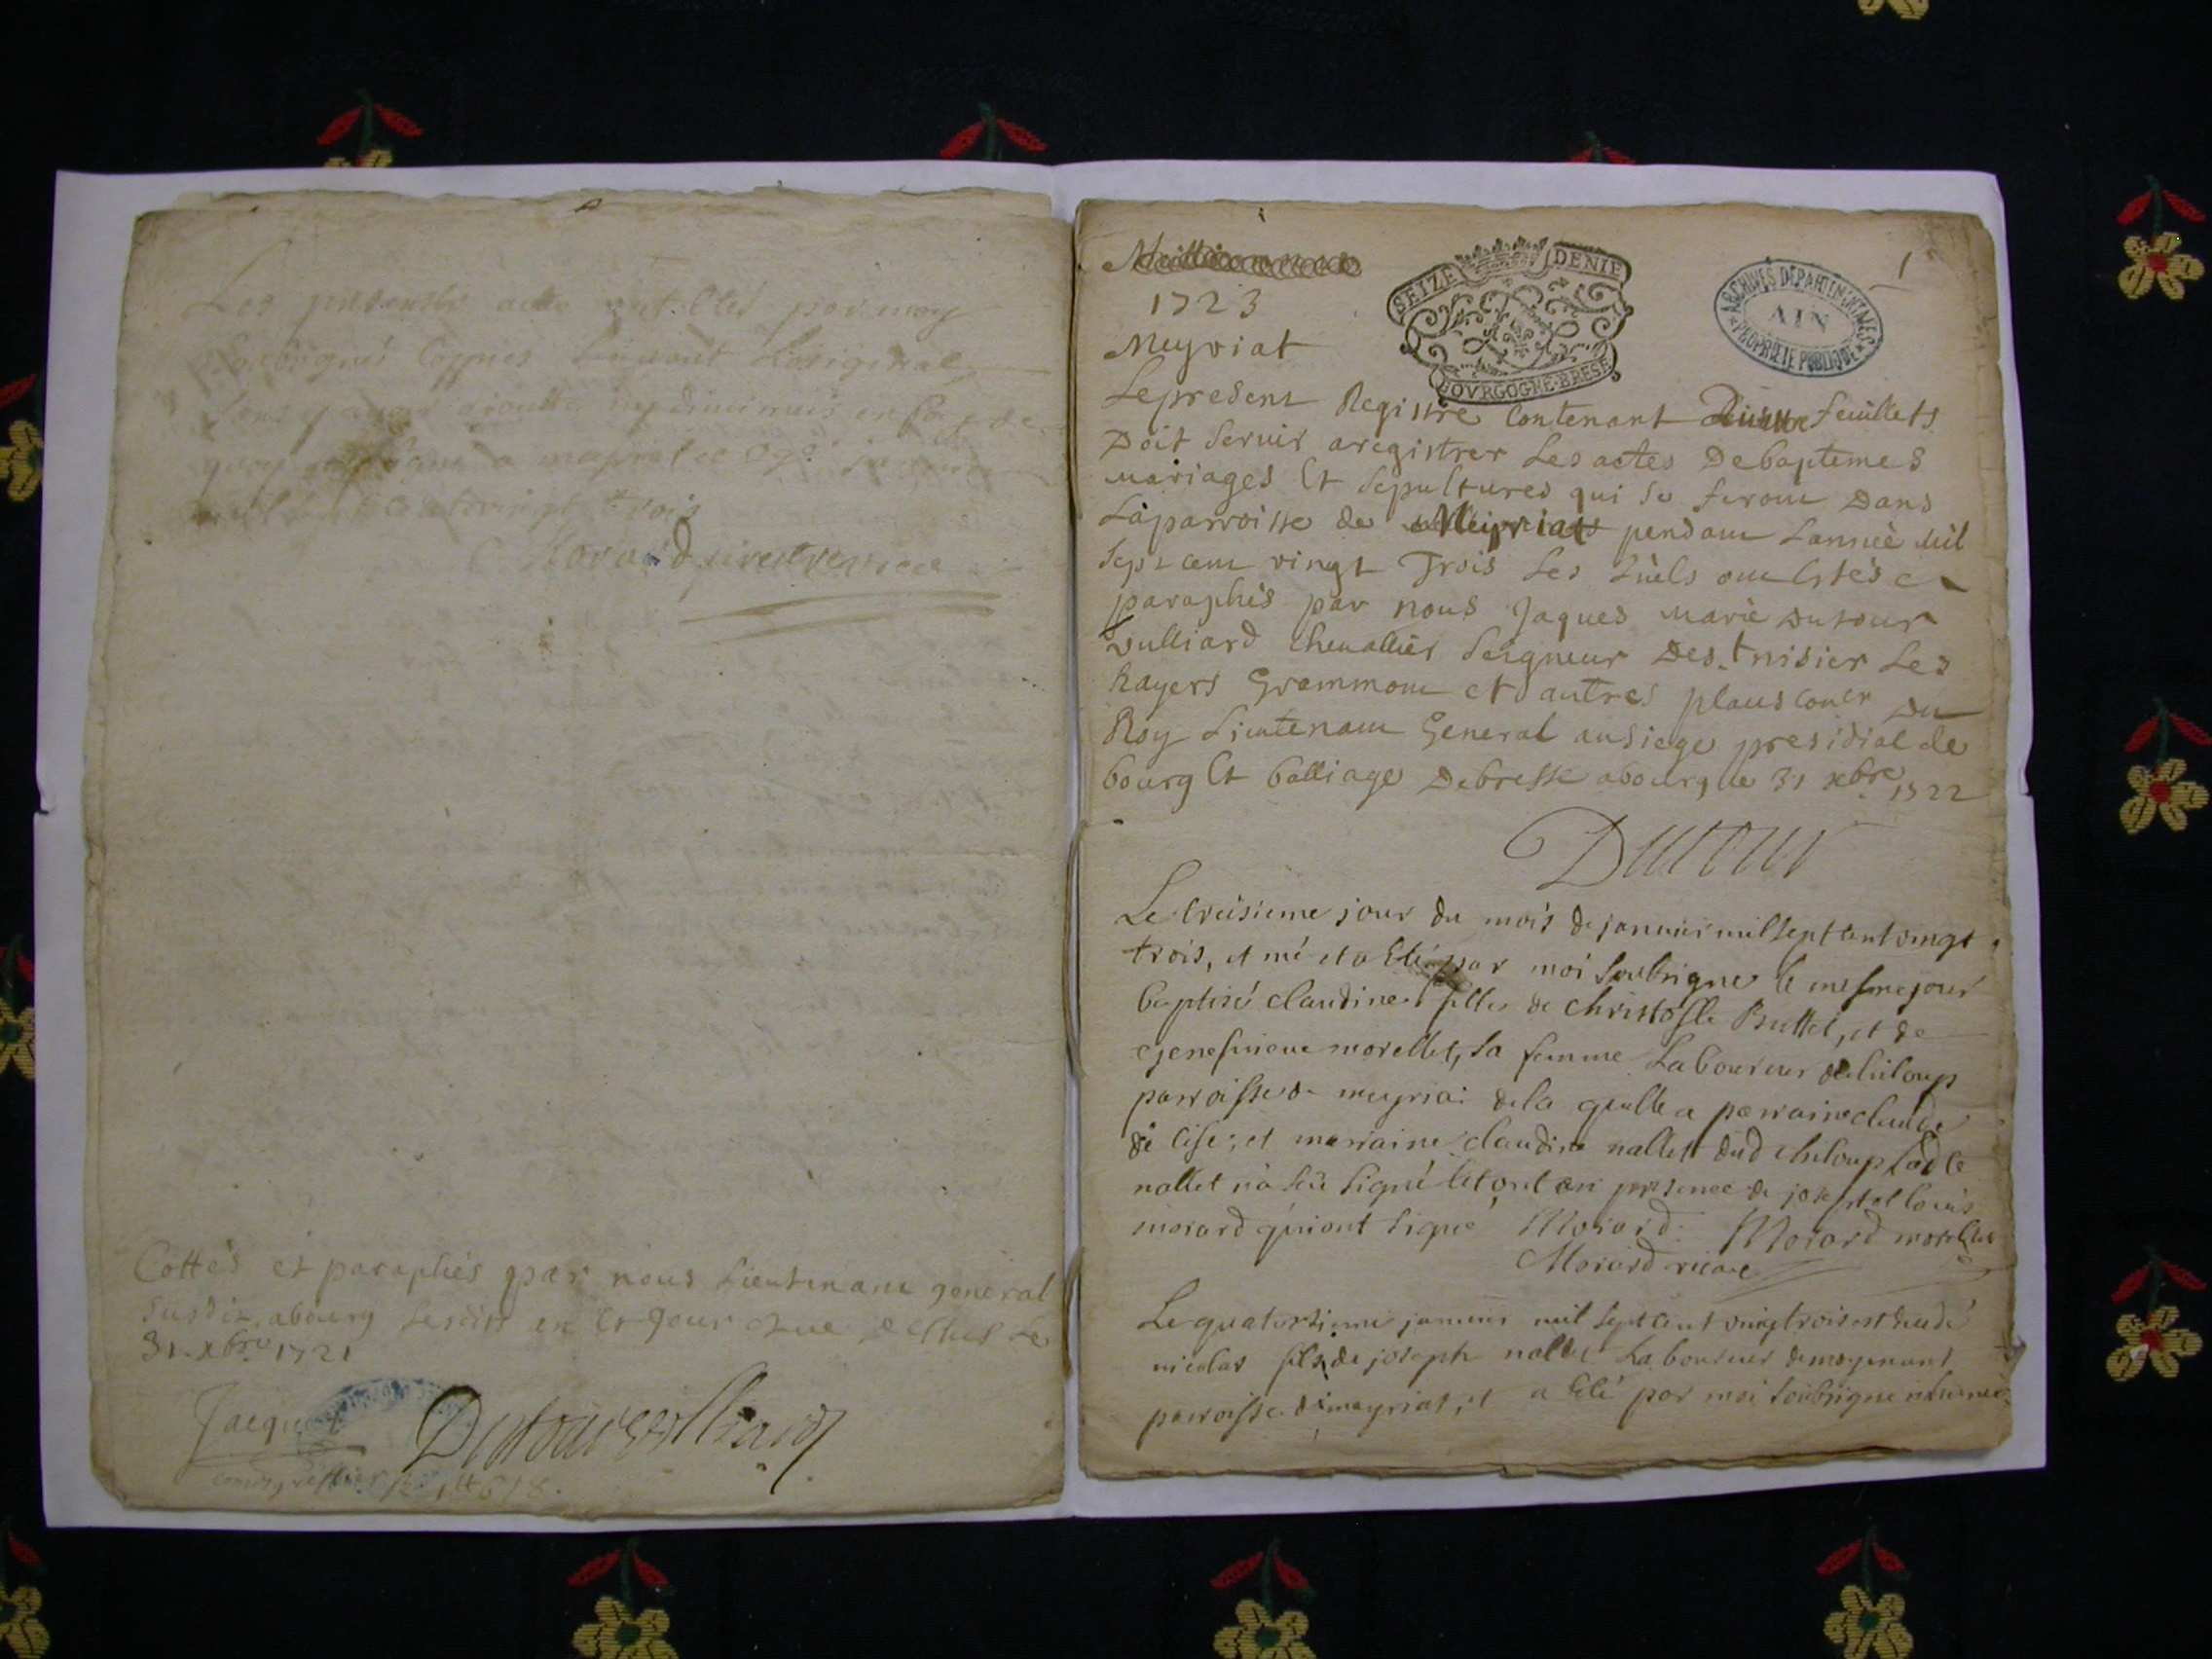 Les presents acte ont Etés par moy
soussigné Coppiés suivant Loriginal
sans y avoir ajoutté ny diminué en foy de
quoy
mil sept cent vingt trois
Morard
Cottés et paraphés par nous Lieutenant general
susdit abourg les dits en et jour que dessus Le
31 xbre 1721
Jacquet
Dutour Vulliard
1723
Meyriat
SEIZE DENIE
BOVRGOGNE·BRESE
ARCHIVES DEPARTEMENTALES
AIN
PROPRIETE PUBLIQUE
1
Lepresent Registre Contenant feuillets
Doit servir aregistrer Les actes Debaptemes
mariages Et sepultures qui se feront Dans
Laparroisse de Meyriat pendant Lanneé mil
sept cent vingt Trois Les quels ont Estés c
paraphés par nous Jaques marie Dutour
vulliard chevallier seigneur Des.t nisier Les
hayers Grammont et autres places coner Du
Roy Lieutenant General ausiege presidial de
bourg Et balliage Debresse abourg le 31 xbre 1722
Dutour
Le treisieme jour du mois de janvier mil sept cent vingt
trois, et né et a Eté par moi soubsigne le mesme jour
baptisé claudine fille de christofle Buttet, et de
genefvieve morellet, sa femme Laboureur de luloup
parroisse de meyriat de la quelle a parraine claude
de lise, et marraine claudine nallet dud cheloup lad le
nallet n'a sçu signé Et ont en presence de joseph et louis
morard qui ont signé Morard Morard morellet
Morard vicaire
Le quatorsieme janvier mil sept cent vingt trois est decedé
nicolas fils de joseph nallet Laboureur de moyenant
parroisse de meyriat, et a Eté par moi soubsigne inhumé